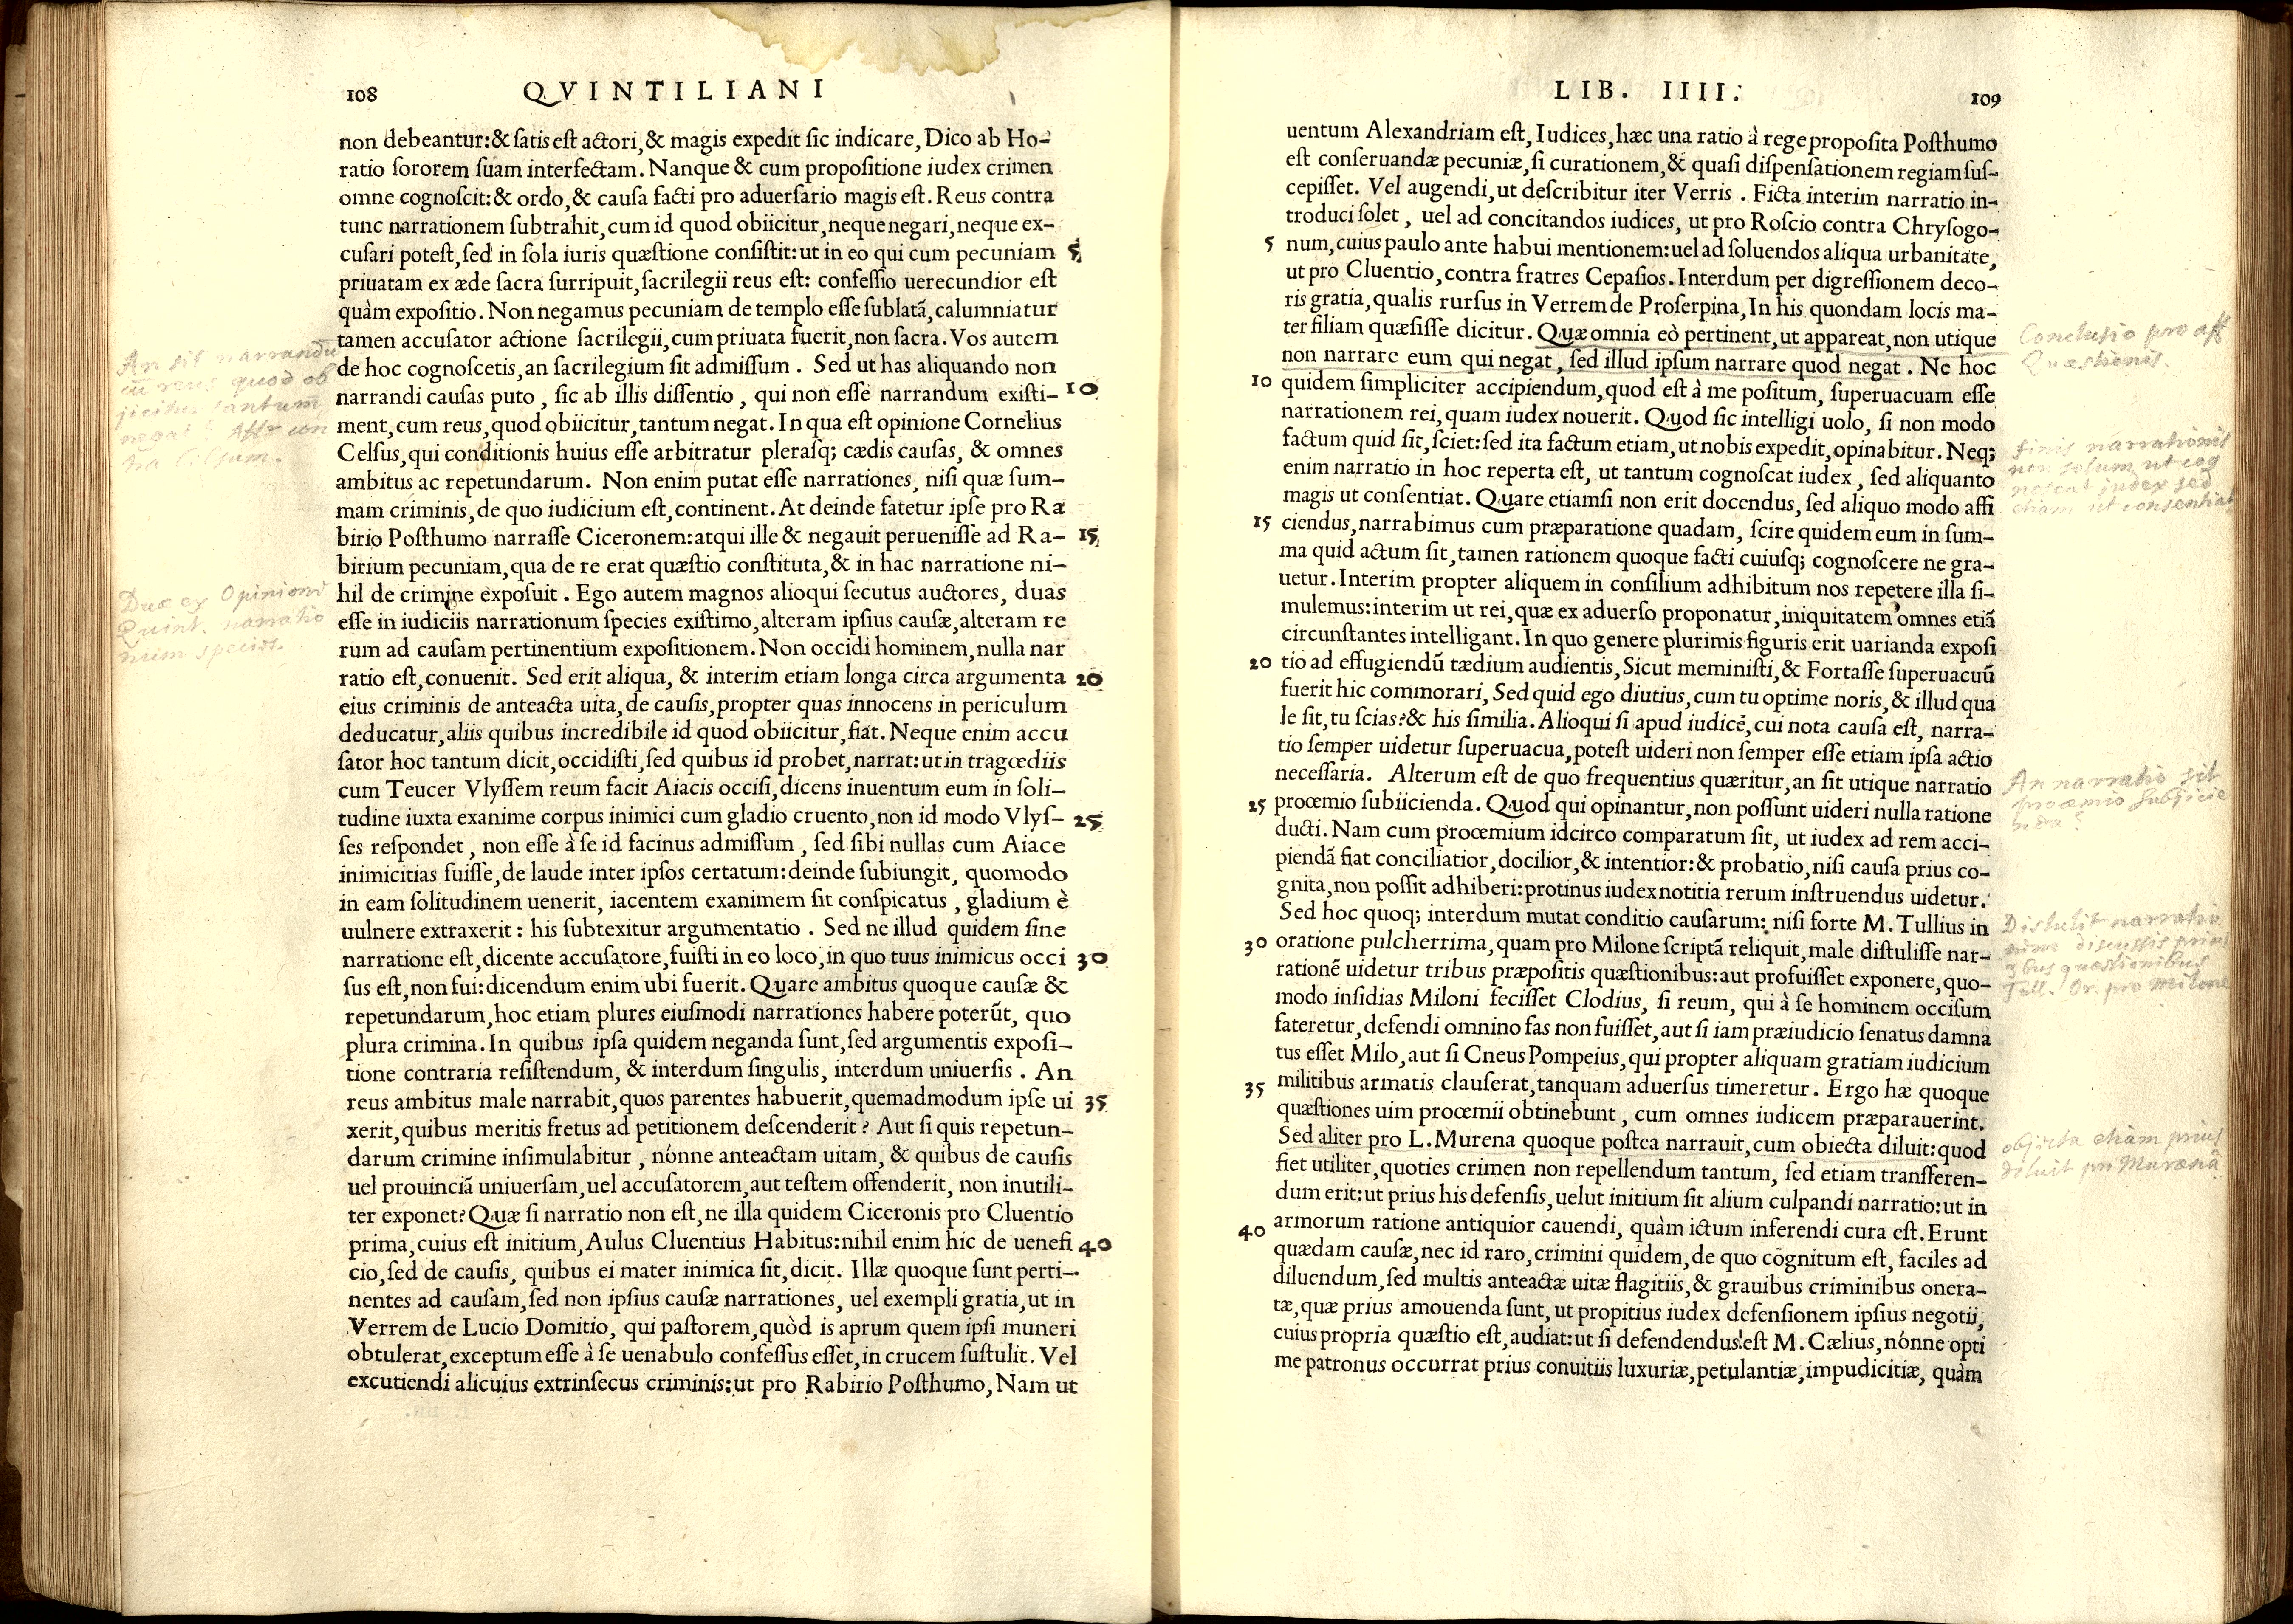 108 QVINTILIANI
non debeantur:& ſatis eſt actori, & magis expedit ſic indicare, Dico ab Ho-
ratio ſororem ſuam interfectam. Nanque & cum propoſitione iudex crimen
omne cognoſcit:& ordo, & cauſa facti pro aduerſario magis eſt. Reus contra
tunc narrationem ſubtrahit, cum id quod obiicitur, neque negari, neque ex-
cuſari poteſt, ſed in ſola iuris quæſtione conſiſtit: ut in eo qui cum pecuniam 5
priuatam ex æde ſacra ſurripuit, ſacrilegii reus eſt: confeſſio uerecundior eſt
quàm expoſitio. Non negamus pecuniam de templo eſſe ſublatã, calumniatur
tamen accuſator actione ſacrilegii, cum priuata fuerit, non ſacra. Vos autem
de hoc cognoſcetis, an ſacrilegium ſit admiſſum. Sed ut has aliquando non
narrandi cauſas puto, ſic ab illis diſſentio, qui non eſſe narrandum exiſti- 10
ment, cum reus, quod obiicitur, tantum negat. In qua eſt opinione Cornelius
Celſus, qui conditionis huius eſſe arbitratur pleraſq; cædis cauſas, & omnes
ambitus ac repetundarum. Non enim putat eſſe narrationes, niſi quæ ſum-
mam criminis, de quo iudicium eſt, continent. At deinde fatetur ipſe pro Ra
birio Poſthumo narraſſe Ciceronem: atqui ille & negauit perueniſſe ad Ra- 15
birium pecuniam, qua de re erat quæſtio conſtituta, & in hac narratione ni-
hil de crimine expoſuit. Ego autem magnos alioqui ſecutus auctores, duas
eſſe in iudiciis narrationum ſpecies exiſtimo, alteram ipſius cauſæ, alteram re
rum ad cauſam pertinentium expoſitionem. Non occidi hominem, nulla nar
ratio eſt, conuenit. Sed erit aliqua, & interim etiam longa circa argumenta 20
eius criminis de anteacta uita, de cauſis, propter quas innocens in periculum
deducatur, aliis quibus incredibile id quod obiicitur, fiat. Neque enim accu
ſator hoc tantum dicit, occidiſti, ſed quibus id probet, narrat: ut in tragœdiis
cum Teucer Vlyſſem reum facit Aiacis occiſi, dicens inuentum eum in ſoli-
tudine iuxta exanime corpus inimici cum gladio cruento, non id modo Vlyſ- 25
ſes reſpondet, non eſſe à ſe id facinus admiſſum, ſed ſibi nullas cum Aiace
inimicitias fuiſſe, de laude inter ipſos certatum: deinde ſubiungit, quomodo
in eam ſolitudinem uenerit, iacentem exanimem ſit conſpicatus, gladium è
uulnere extraxerit: his ſubtexitur argumentatio. Sed ne illud quidem ſine
narratione eſt, dicente accuſatore, fuiſti in eo loco, in quo tuus inimicus occi 30
ſus eſt, non fui: dicendum enim ubi fuerit. Quare ambitus quoque cauſæ &
repetundarum, hoc etiam plures eiuſmodi narrationes habere poterũt, quo
plura crimina. In quibus ipſa quidem neganda ſunt, ſed argumentis expoſi-
tione contraria reſiſtendum, & interdum ſingulis, interdum uniuerſis. An
reus ambitus male narrabit, quos parentes habuerit, quemadmodum ipſe ui 35
xerit, quibus meritis fretus ad petitionem deſcenderit? Aut ſi quis repetun-
darum crimine inſimulabitur, nónne anteactam uitam, & quibus de cauſis
uel prouinciã uniuerſam, uel accuſatorem, aut teſtem offenderit, non inutili-
ter exponet? Quæ ſi narratio non eſt, ne illa quidem Ciceronis pro Cluentio
prima, cuius eſt initium, Aulus Cluentius Habitus: nihil enim hic de uenefi 40
cio, ſed de cauſis, quibus ei mater inimica ſit, dicit. Illæ quoque ſunt perti-
nentes ad cauſam, ſed non ipſius cauſæ narrationes, uel exempli gratia, ut in
Verrem de Lucio Domitio, qui paſtorem, quòd is aprum quem ipſi muneri
obtulerat, exceptum eſſe à ſe uenabulo confeſſus eſſet, in crucem ſuſtulit. Vel
excutiendi alicuius extrinſecus criminis: ut pro Rabirio Poſthumo, Nam ut
An sit narrandũ
cũ reus quod ob
jicitur tantum
negat? Affr con
tra Celsum.
Duæ ex Opinione
Quint. narratio
num species.
LIB. IIII. 109
uentum Alexandriam eſt, Iudices, hæc una ratio à rege propoſita Poſthumo
eſt conſeruandæ pecuniæ, ſi curationem, & quaſi diſpenſationem regiam ſuſ-
cepiſſet. Vel augendi, ut deſcribitur iter Verris. Ficta interim narratio in-
troduci ſolet, uel ad concitandos iudices, ut pro Roſcio contra Chryſogo-
5 num, cuius paulo ante habui mentionem: uel ad ſoluendos aliqua urbanitate,
ut pro Cluentio, contra fratres Cepaſios. Interdum per digreſſionem deco-
ris gratia, qualis rurſus in Verrem de Proſerpina, In his quondam locis ma-
ter filiam quæſiſſe dicitur. Quæ omnia eò pertinent, ut appareat, non utique
non narrare eum qui negat, ſed illud ipſum narrare quod negat. Ne hoc
10 quidem ſimpliciter accipiendum, quod eſt à me poſitum, ſuperuacuam eſſe
narrationem rei, quam iudex nouerit. Quod ſic intelligi uolo, ſi non modo
factum quid ſit, ſciet: ſed ita factum etiam, ut nobis expedit, opinabitur. Neq;
enim narratio in hoc reperta eſt, ut tantum cognoſcat iudex, ſed aliquanto
magis ut conſentiat. Quare etiamſi non erit docendus, ſed aliquo modo affi
15 ciendus, narrabimus cum præparatione quadam, ſcire quidem eum in ſum-
ma quid actum ſit, tamen rationem quoque facti cuiuſq; cognoſcere ne gra-
uetur. Interim propter aliquem in conſilium adhibitum nos repetere illa ſi-
mulemus: interim ut rei, quæ ex aduerſo proponatur, iniquitatem omnes etiã
circunſtantes intelligant. In quo genere plurimis figuris erit uarianda expoſi
20 tio ad effugiendũ tædium audientis, Sicut meminiſti, & Fortaſſe ſuperuacuũ
fuerit hic commorari, Sed quid ego diutius, cum tu optime noris, & illud qua
le ſit, tu ſcias? & his ſimilia. Alioqui ſi apud iudicẽ, cui nota cauſa eſt, narra-
tio ſemper uidetur ſuperuacua, poteſt uideri non ſemper eſſe etiam ipſa actio
neceſſaria. Alterum eſt de quo frequentius quæritur, an ſit utique narratio
25 procemio ſubiicienda. Quod qui opinantur, non poſſunt uideri nulla ratione
ducti. Nam cum procemium idcirco comparatum ſit, ut iudex ad rem acci-
piendã fiat conciliatior, docilior, & intentior: & probatio, niſi cauſa prius co-
gnita, non poſſit adhiberi: protinus iudex notitia rerum inſtruendus uidetur.
Sed hoc quoq; interdum mutat conditio cauſarum: niſi forte M. Tullius in
30 oratione pulcherrima, quam pro Milone ſcriptã reliquit, male diſtuliſſe nar-
rationẽ uidetur tribus præpoſitis quæſtionibus: aut profuiſſet exponere, quo-
modo inſidias Miloni feciſſet Clodius, ſi reum, qui à ſe hominem occiſum
fateretur, defendi omnino fas non fuiſſet, aut ſi iam præiudicio ſenatus damna
tus eſſet Milo, aut ſi Cneus Pompeius, qui propter aliquam gratiam iudicium
35 militibus armatis clauſerat, tanquam aduerſus timeretur. Ergo hæ quoque
quæſtiones uim procemii obtinebunt, cum omnes iudicem præparauerint.
Sed aliter pro L. Murena quoque poſtea narrauit, cum obiecta diluit: quod
fiet utiliter, quoties crimen non repellendum tantum, ſed etiam transferen-
dum erit: ut prius his defenſis, uelut initium ſit alium culpandi narratio: ut in
40 armorum ratione antiquior cauendi, quàm ictum inferendi cura eſt. Erunt
quædam cauſæ, nec id raro, crimini quidem, de quo cognitum eſt, faciles ad
diluendum, ſed multis anteactæ uitæ flagitiis, & grauibus criminibus onera-
tæ, quæ prius amouenda ſunt, ut propitius iudex defenſionem ipſius negotii,
cuius propria quæſtio eſt, audiat: ut ſi defendendus eſt M. Cælius, nónne opti
me patronus occurrat prius conuitiis luxuriæ, petulantiæ, impudicitiæ, quàm
Conclusio pro aff
Quæstionis.
finis narrationis
non solum ut cog
noscat judex sed
etiam ut consentiat
An narratio sit
proœmio subjicie
nda?
Distulit narratio
nem discussis prius
quæstionibus
Tull. Or. pro Milone
objecta etiam prius
diluit pro Murænâ